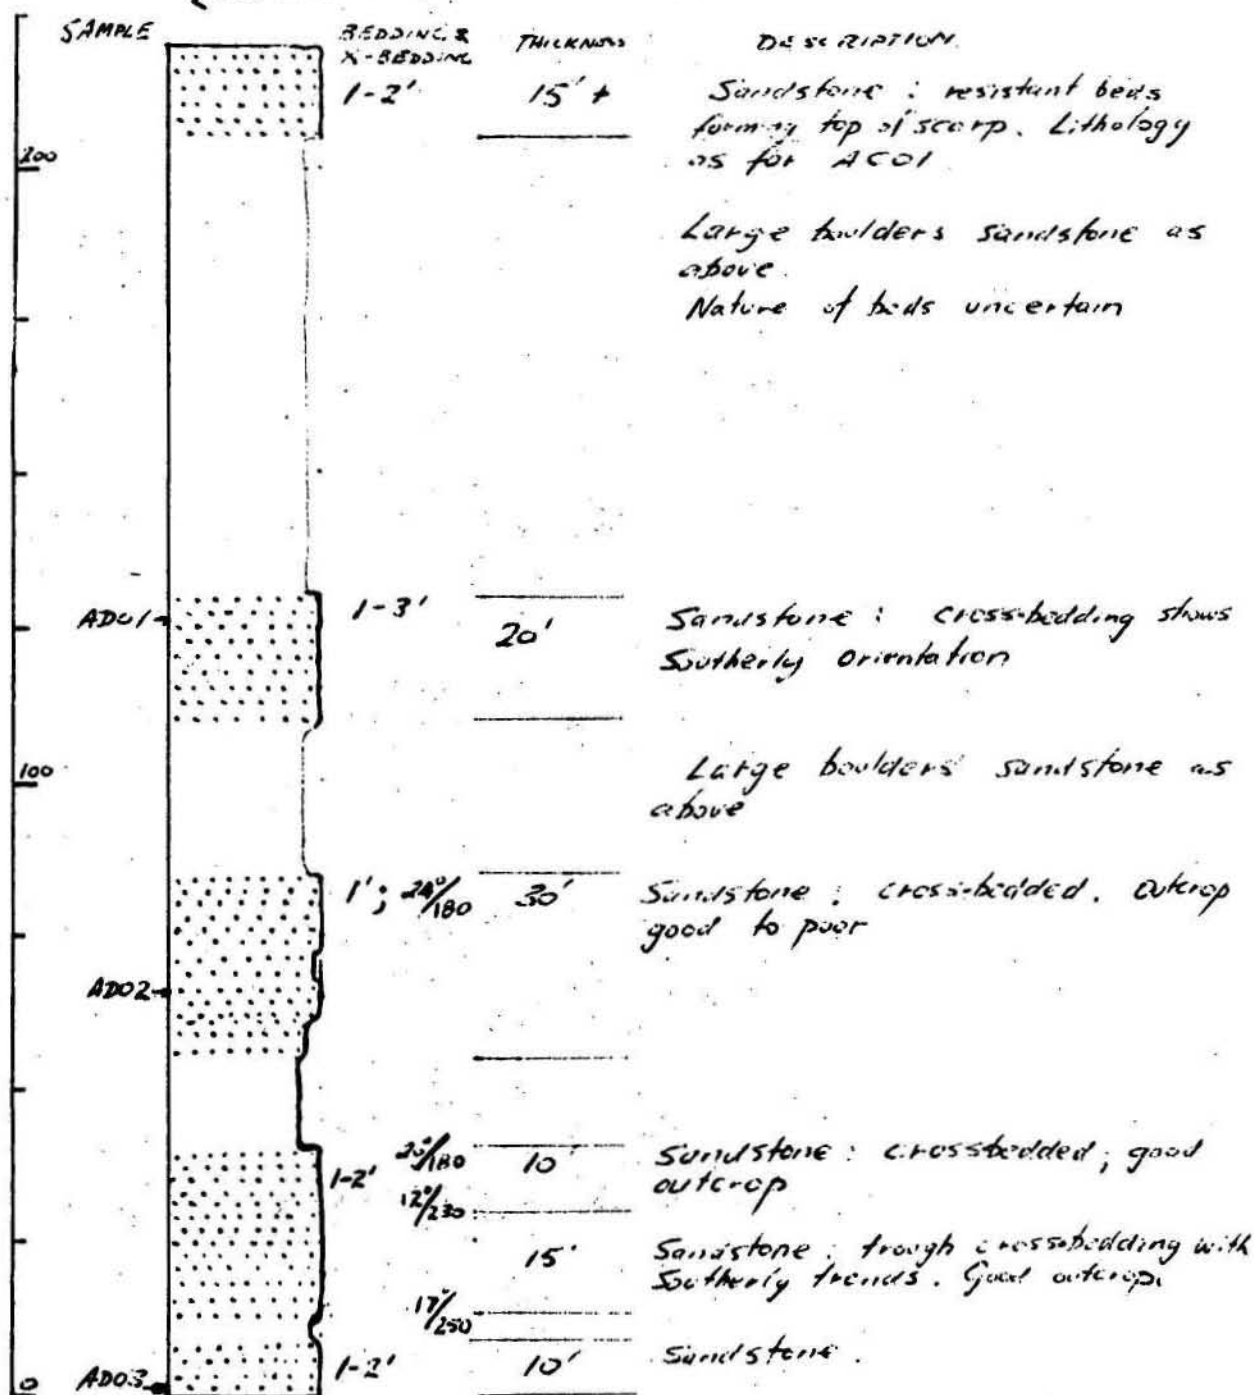 SAMPLE
BEDDING & X-BEDDING
THICKNESS
DESCRIPTION
1-2'
15' +
Sandstone : resistant beds
forming top of scarp. Lithology
as for AC01
200
Large boulders sandstone as
above.
Nature of beds uncertain
AD01
1-3'
20'
Sandstone : cross-bedding shows
Southerly Orientation
100
Large boulders sandstone as
above
1' ; 24°/180
30'
Sandstone : cross-bedded. Outcrop
good to poor
AD02
1-2'
20°/180
10'
Sandstone : crossbedded ; good
outcrop
12°/230
15'
Sandstone : trough crossbedding with
Southerly trends. Good outcrop.
17°/250
0
AD03
1-2'
10'
Sandstone.